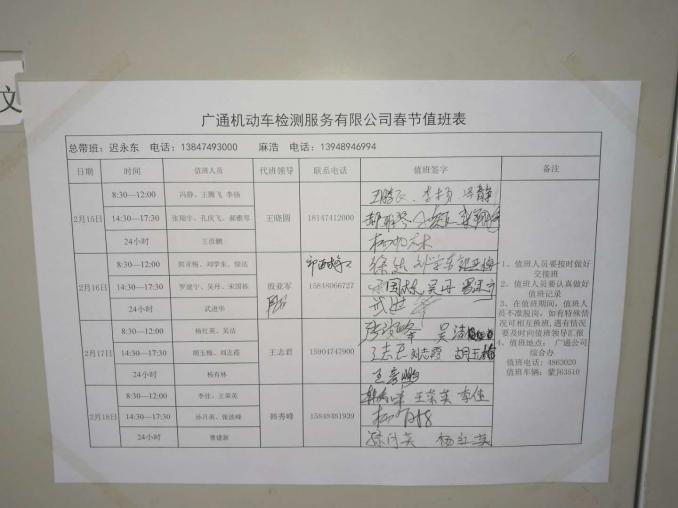 文
广通机动车检测服务有限公司春节值班表
总带班：迟永东 电话：13847493000 麻浩 电话：13948946994
日期 时间 值班人员 代班领导 联系电话 值班签字 备注
2月15日 王晓圆 18147412000
8:30—12:00 冯静、王腾飞 李杨 王腾飞、李杨 冯静
14:30—17:30 张瑞宇、孔庆飞、郝雅琴
24小时 王彦鹏
2月16日 殷亚军 15848066727
8:30—12:00 郭亚梅、刘学东、徐法
14:30—17:30 罗建宁、吴丹、宋国栋
24小时 武进华 武进华
2月17日 王志君 15904747900
8:30—12:00 杨红英、吴洁 吴洁
14:30—17:30 胡玉梅、刘志霞 刘志霞 胡玉梅
24小时 杨有林 王彦鹏
2月18日 韩秀峰 15848481939
8:30—12:00 李佳、王荣英 韩秀峰 王荣英 李佳
14:30—17:30 孙月英、张波峰
24小时 曹建新 孙月英 杨红英
1、值班人员要按时做好
交接班
2、值班人员要认真做好
值班记录
3、在值班期间，值班人
员不准脱岗，如有特殊情
况可相互换班，遇有情况
要及时向值班领导汇报
4、值班地点： 广通公司
综合办
值班电话：4863020
值班车辆：蒙J63510